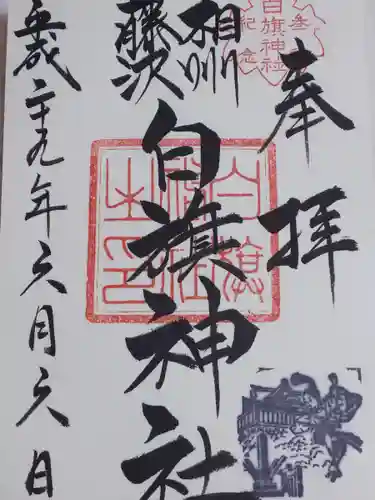 奉拝
相州
藤沢
白旗神社
平成二十九年六月六日
参拝
紀念
白旗神社
白旗神社之印